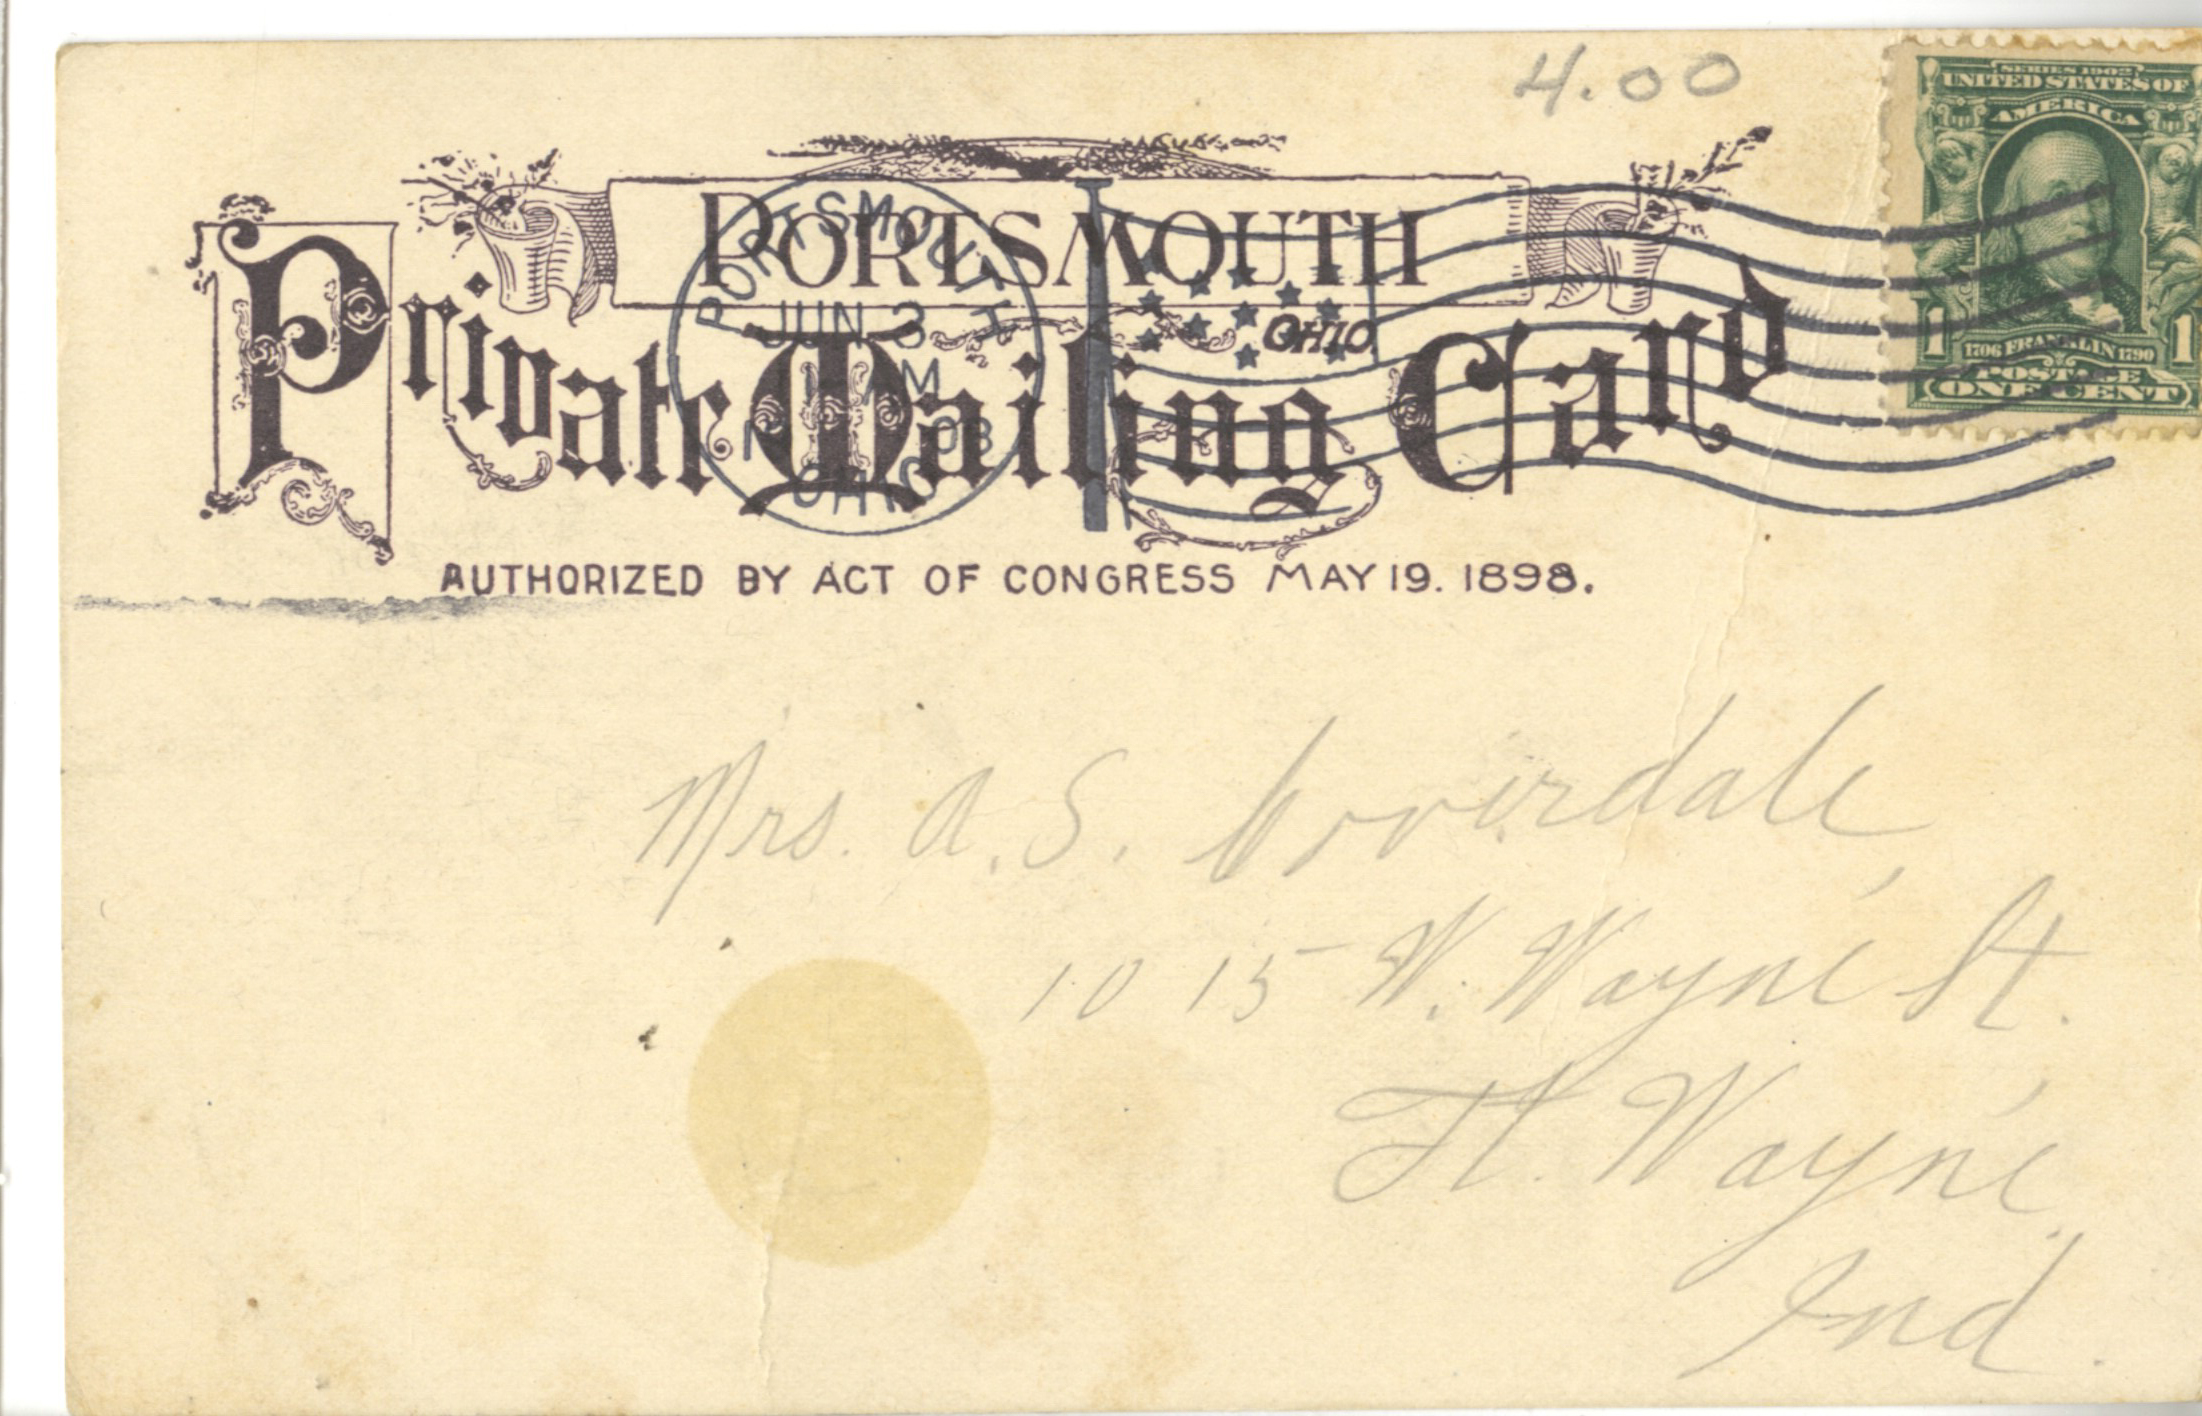 4.00
SERIES 1902
UNITED STATES OF
AMERICA
1706 FRANKLIN 1790
1 1
POSTAGE
ONE CENT
PORTSMOUTH
OHIO.
Private Mailing Card
PORTSMOUTH
JUN 3
M
OHIO
AUTHORIZED BY ACT OF CONGRESS MAY 19. 1898.
Mrs. A. S. Coverdale,
1015 W. Wayne St.
Ft. Wayne,
Ind.